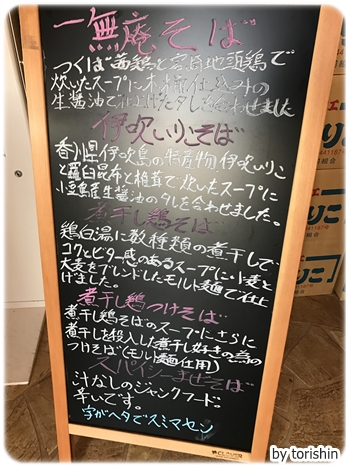 一無庵そば
つくば茜鶏と宮崎地頭鶏で
炊いたスープに木桶仕込みの
生醤油で仕上げたタレを合わせました
伊吹いりこそば
香川県伊吹島の特産物、伊吹いりこ
と羅臼昆布と椎茸で炊いたスープに
小豆島産生醤油のタレを合わせました。
煮干し鶏そば
鶏白湯に数種類の煮干しで
コクとビター感のあるスープに小麦と
大麦をブレンドしたモルト麺で仕上
げました。
煮干し鶏つけそば
煮干し鶏そばのスープにさらに
煮干しを投入した煮干し好きの為の
つけそば(モルト麺仕用)
スパイシーまぜそば
汁なしのジャンクフード。
辛いです。
字がヘタでスミマセン
by torishin